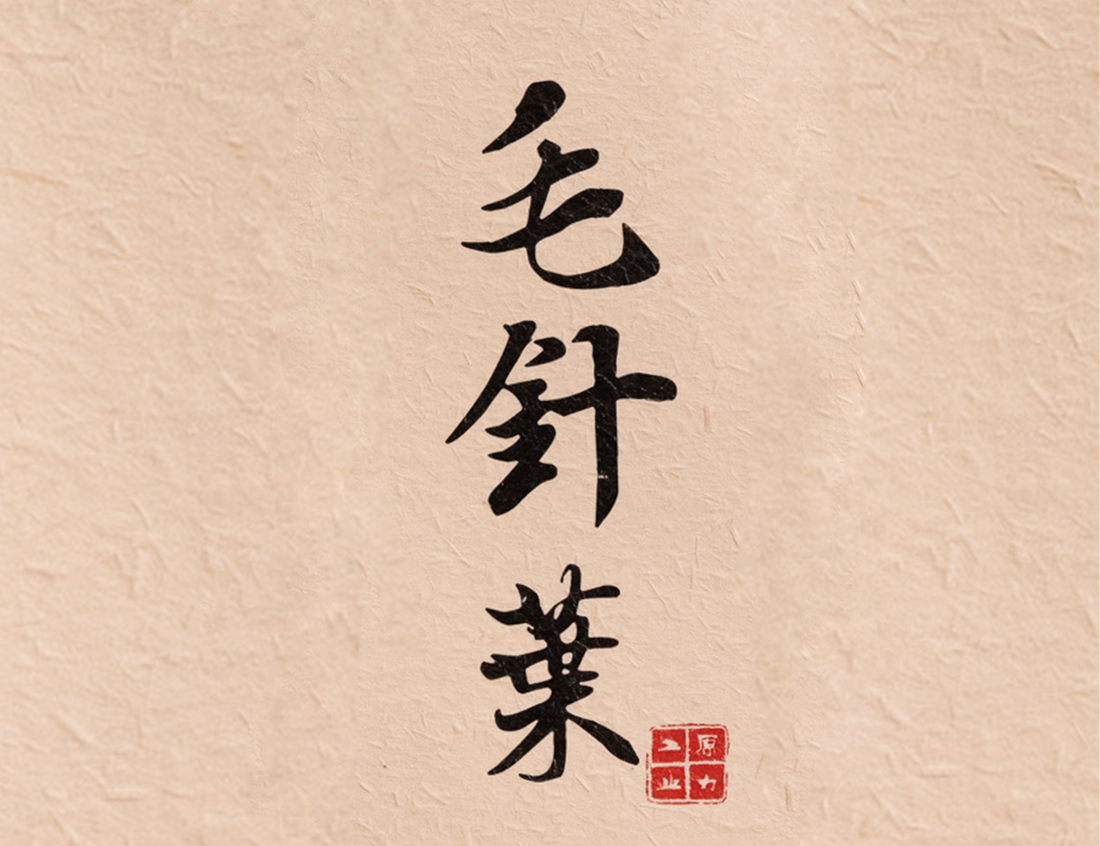 毛針葉
原力
工业